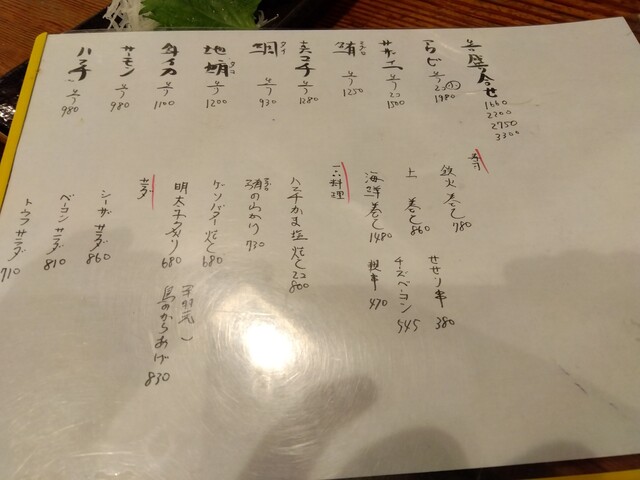 盛合せ 1660 2200 2750 3300
2コ 1980
サザエ 2コ 1500
鮪 1250
真コチ 1280
鯛 タイ 930
地蛸 タコ 1200
イカ 1100
サーモン 980
ハマチ 980
寿司
鉄火巻し 780
上巻し 860
海鮮巻し 1480
せせり串 380
チーズベーコン 545
串 470
一六料理
ハマチかま塩焼し 2コ 860
730
ゲソバタ焼し 680
明太子タタリ 680
手羽元
鳥のからあげ 830
サラダ
シーザーサラダ 860
ベーコンサラダ 810
トウフサラダ 710